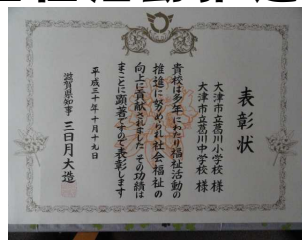 表彰状
大津市立葛川小学校 様
大津市立葛川中学校 様
貴校は多年にわたり福祉活動の
推進に努められ社会福祉の
向上に貢献されました その功績は
まことに顕著ですので表彰します
平成三十年十月十九日
滋賀県知事 三日月大造